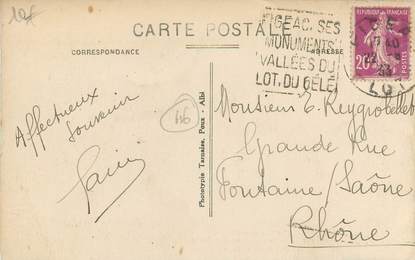 10f
CARTE POSTALE
CORRESPONDANCE
ADRESSE
FIGEAC, SES
MONUMENTS
VALLÉES DU
LOT, DU CÉLÉ
20c
LOT
Affectueux
souvenir
116
Phototypie Tarnaise, Poux - Albi
Monsieur E. Reygrobellet
Grande Rue
Fontaine/Saône
Rhône